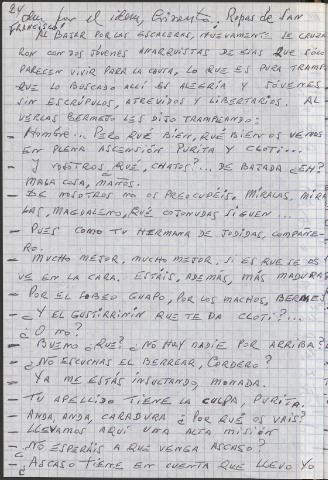 24
den por el idem Cirauta. Ropas de San
Francisco!
Al bajar por las escaleras, nuevamente le cruza
ron con dos jóvenes anarquistas de esas que sólo
parecen vivir para la causa, lo que es pura trampa
que lo buscado allí es alegría y jóvenes
sin escrúpulos, atrevidos y libertarios. Al
verlas Bermejo les dijo trampeando:
- Hombre... Pero qué bien, qué bien os vemos
en plena ascensión Purita y Cloti...
- Y vosotros qué, chatos?... De bajada ¿eh?
Mala cosa, maños.
- De nosotros no os preocupéis. Míralas, míra
las, Magdaleno, qué cojonudas siguen...
- Pues como tu hermana de jodidas, compañe-
ro.
- Mucho mejor, mucho mejor. Si es que se os
ve en la cara. Estáis, además, más maduras
- Por el sobeo guapo, por los machos, Bermej
- ¿Y el gustirrinín que te da Cloti?...
¿O no?
- Bueno ¿qué? ¿No hay nadie por arriba?
- ¿No escuchas el berrear, Cordero?
- Ya me estás insultando, monada.
- Tu apellido tiene la culpa, Purita.
- Anda, anda, caradura ¿por qué os vais?
- Llevamos aquí una alta misión
- ¿No esperáis a que venga Ascaso?
- ¿Ascaso tiene en cuenta que llevo yo